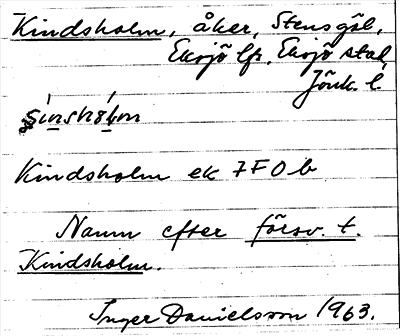 Kindsholm, åker, Stensgöl,
Eksjö lfs. Eksjö stad,
Jönk. l.
Kindsholm ek 7F0b
Namn efter försv. t.
Kindsholm.
Inger Danielsson 1963.